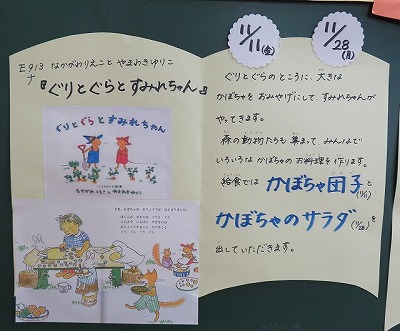 E913 なかがわりえこと やまわきゆりこ
ナ
『ぐりとぐらとすみれちゃん』
ぐりとぐらとすみれちゃん
なかがわりえことやまわきゆりこ
11/11(金)
11/28(月)
ぐりとぐらのところに、大きな
かぼちゃをおみやげにして、すみれちゃんが
やってきます。
森の動物たちも集まって、みんなで
いろいろなかぼちゃのお料理を作ります。
給食では かぼちゃ団子(11/11)と
かぼちゃのサラダ(11/28)を
出していただきます。